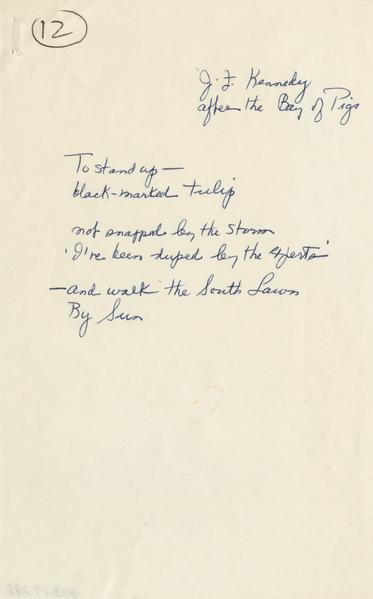 12
J. F. Kennedy
after the Bay of Pigs
To stand up —
black-marked tulip
not snapped by the storm
'I've been duped by the experts'
— and walk the South Lawn
By Sun